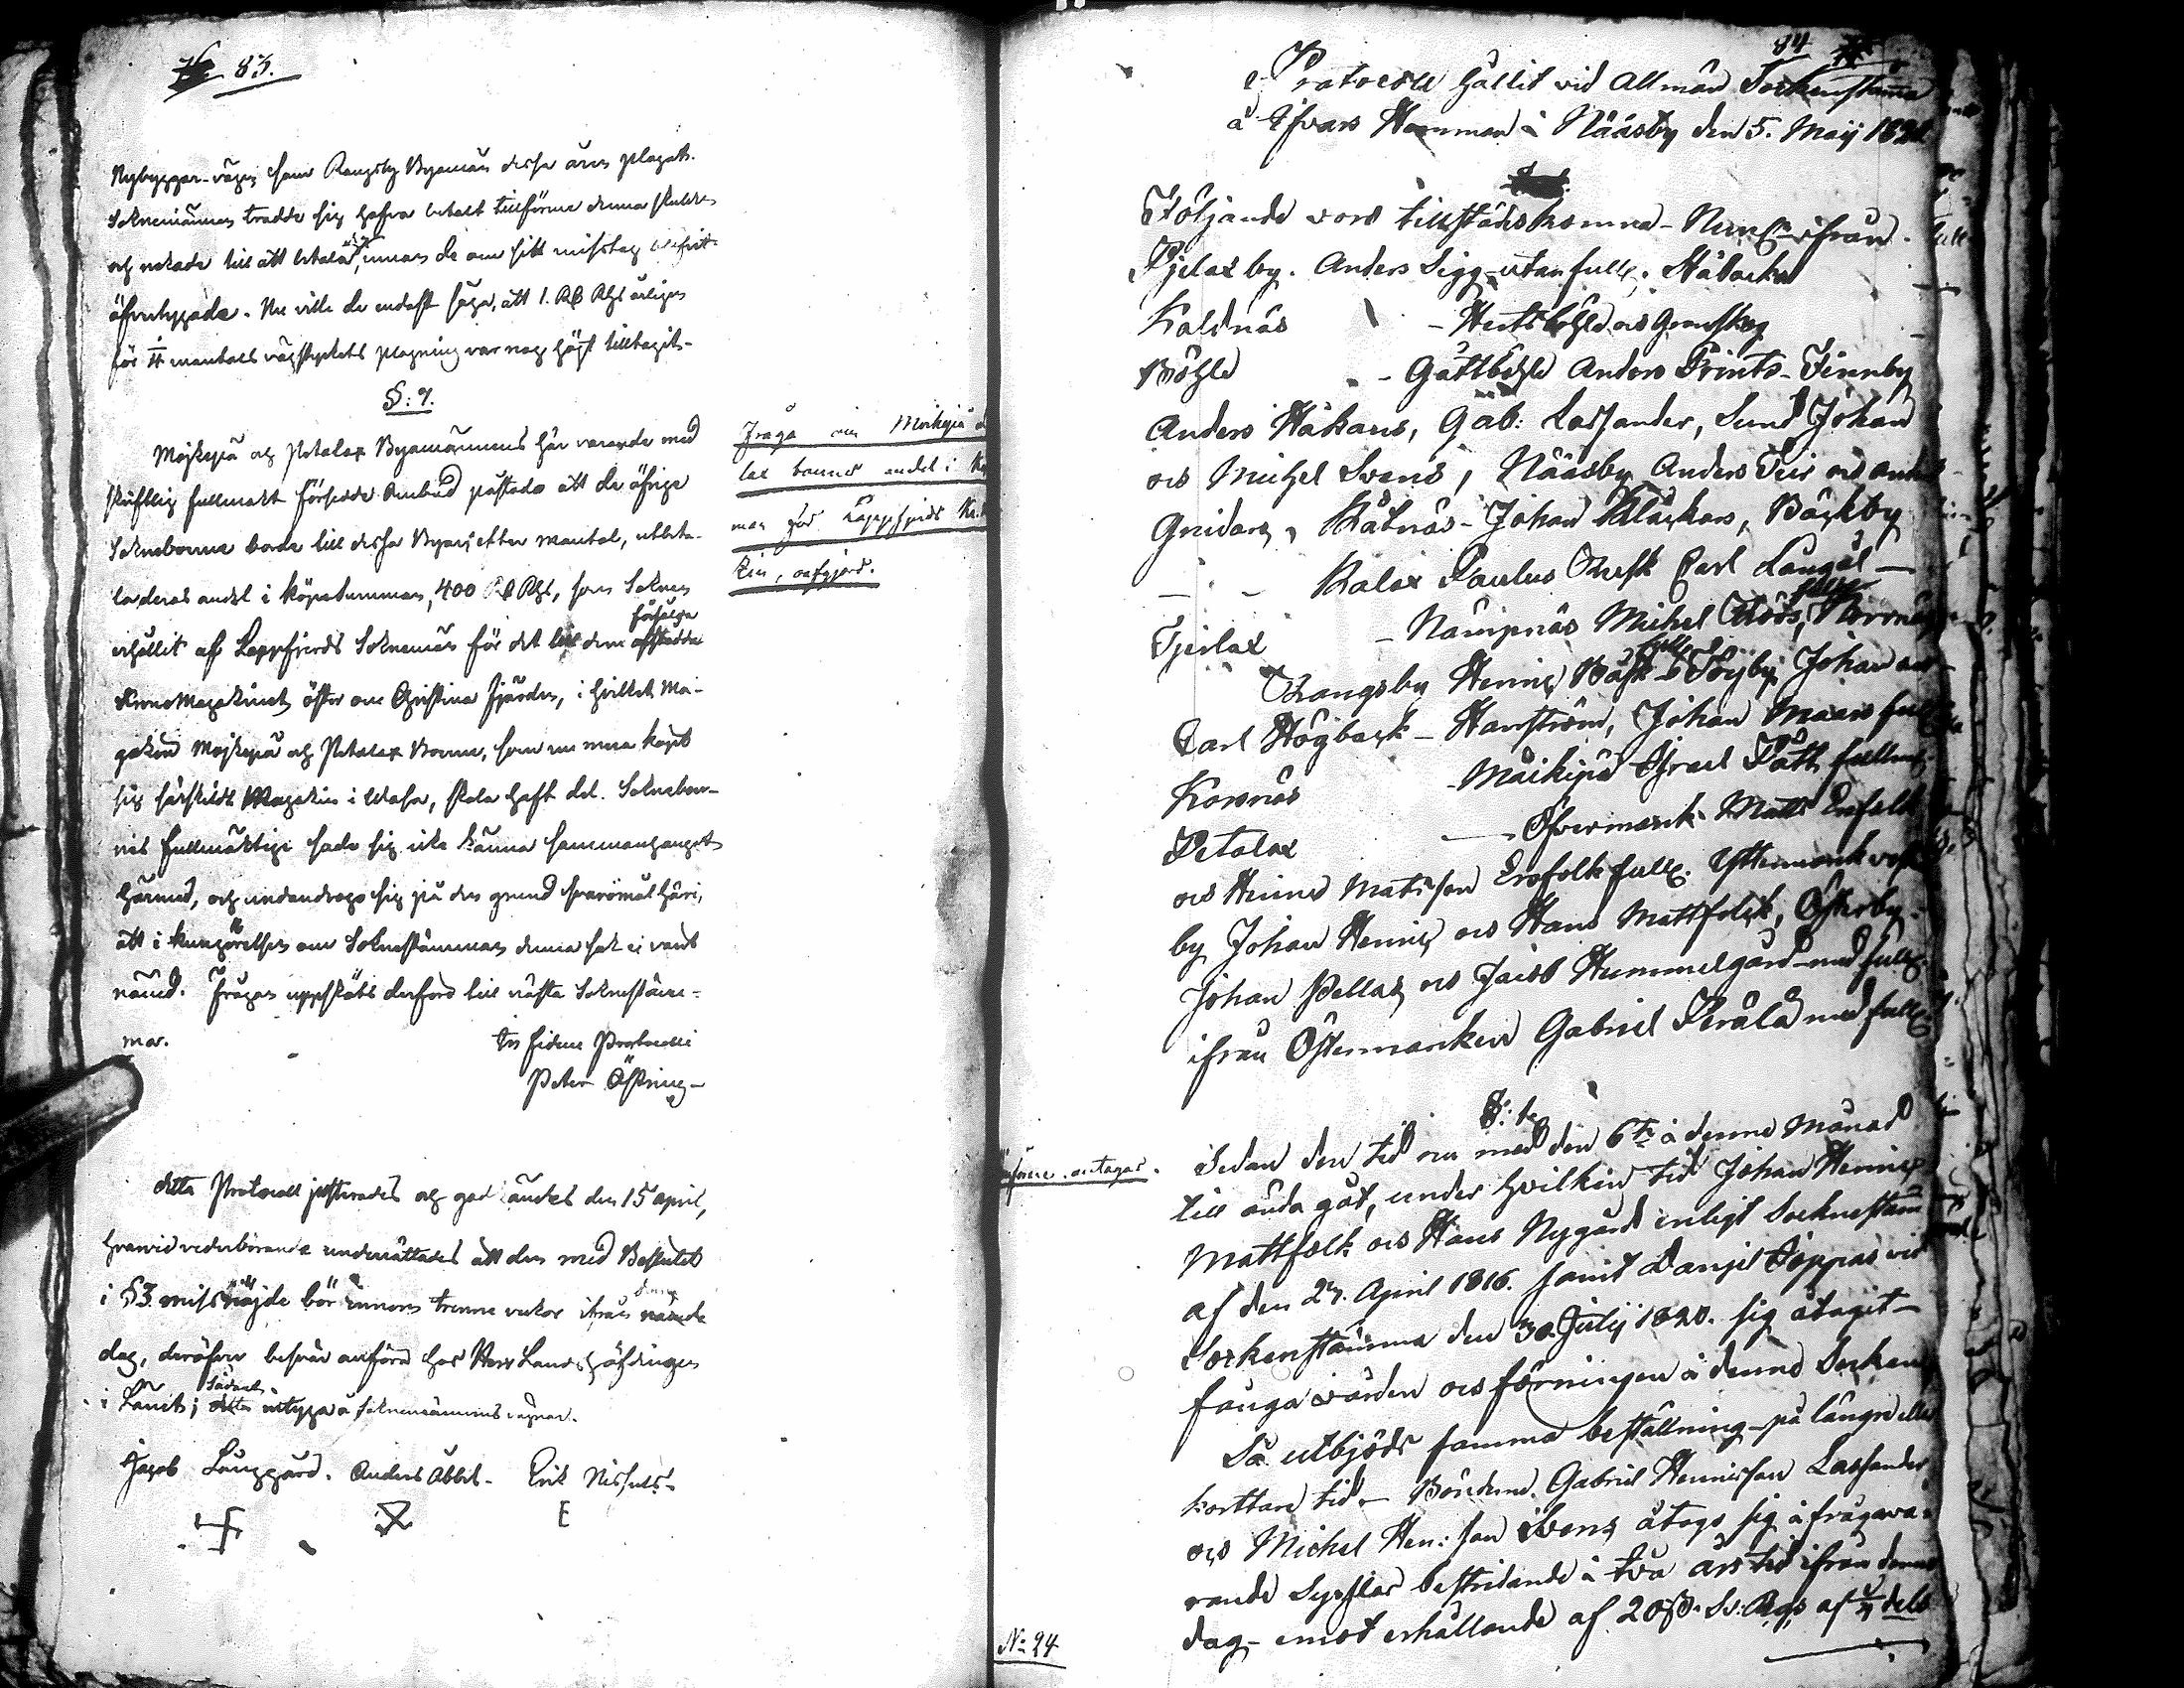 83.
Nybyggar-vägen som Rangsby Byamän dessa åren plogat.
Soknemännen trodde sig hafva betalt tillförne denna skulden
och nekade till att betala, innan de om sitt misstag blifvit
öfvertygade. Nu ville de endast säga, att 1. Rd Rgs årligen
för 1/4 mantals vägstyckets plogning var nog högt tilltagit.
§: 9.
Mojkepä och Petalax Byamännens här varande med
skriftlig fullmakt försedde Ombud påstodo att de öfrige
Sokneboerne borde till dessa Byar, efter mantal, utbeta-
la deras andel i köpesumman, 400 Rd Rgs, som Soknen
erhållit af Lappfjerds Soknemän för det till dem försålda
Sockne Magazinet öster om Christina fjärden, i hvilket Ma-
gazin Mojkepä och Petalax Boerne, som nu mera köpt
sig särskildt Magazin i Wasa, skola haft del. Soknebor-
nes fullmäktige sade sig icke känna sammanhanget
härmed, och undandrogo sig på den grund svaromål häri,
att i kungörelsen om Soknestämman denna sak ei varit
nämd. Frågan uppsköts derföre till nästa Soknestäm-
ma.
in fidem Protocolli
Peter Östring
Fråga om Moikepä
lax boernes andel i
man för Lappfjerds
zin, oafgjord.
Detta Protocoll justerades och godkändes den 15 april,
hvarvid vederbörande underrättades att den med Beslutet
i §3 missnöjde bör innom trenne veckor ifrån denna
dag, deröfver besvär anföra hos Herr Landshöfdingen
i Länet; Sådant intyga å soknemännens vägnar.
Jacob Långgård. Anders Åbbal. Erik Nissus.
84
Protocoll hållit vid Allmän Sockenstäma
å Ifvars Hemman i Nääsby den 5. Maij 1821
Följande voro tillstädeskomne - Neml. ifrån
Pjelax by. Anders Sigg utan fullm. Nåbacka
Kaldnäs - Hertsböhle och Granskog
Böhle - Gottböhle Anders Prints - Finnby
Anders Håkans, Gab: Lassander, Sund Johan
och Michel Svens, Nääsby Anders Teir och Anders
Gnidars, Kåtnäs - Johan Klockars, Bäckby
Kalax Paulus Qvist Carl Långål
Tjerlax - Nämpnäs Michel Norrnäs
Rangsby Henric Bäck Töjby Johan och
Carl Högback - Harrström, Johan Maars fullm
Korsnäs - Moikipä Israel Pått fullm
Petalax - Öfvermark Matts Erafolk
och Henric Matsson Erafolk fullm. Yttermark
by Johan Henric och Hans Mattfolk, Österby
Johan Pellas och Jacob Hummelgård med fullm.
ifrån Östermarken Gabriel Perälä med fullm
§: 1.
Sedan den tid nu med den 6te i denne Månad
till ända gåt, under hvilken tid Johan Henric
Mattfolk och Hans Nygård enligt Socknestäm
af den 27. April 1816. samt Daniel Hoppas vid
Sockenstämma den 30. Julij 1820. sig åtagit
fånga vården och förningen i denne Socken
Så utbjöds samma beställning på längre eller
korttare tid - Bönderne Gabriel Henricson Lassander
och Michel Hen:son Svens åtogo sig ifrågava-
rande Sysslas bestridande i två års tid ifrån denne
dag, emot erhållande af 20 sk. Sv: Rgs af 1/4 dels
antagas.
No 24